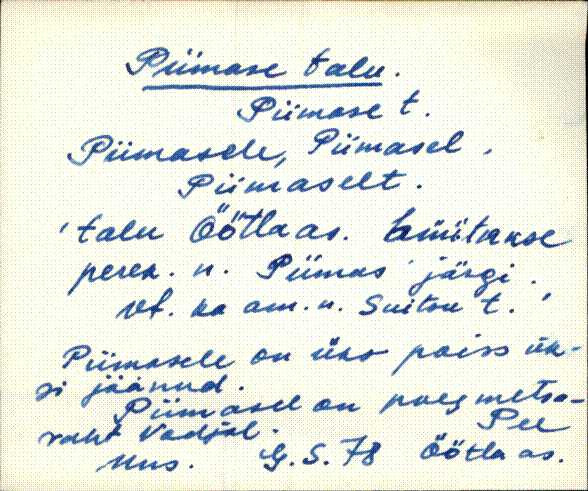 Piimase talu.
Piimase t.
Piimasele, Piimasel,
Piimaselt.
'talu Öötla as. hüütakse
perek. n. Piimas järgi.
vt. ka am. n. Suitsu t.'
Piimasele on üks poiss ük-
si jäänud.
Piimasel on poeg metsa-
vaht Vodjal.
Pee
G. S. 78 Öötla as.